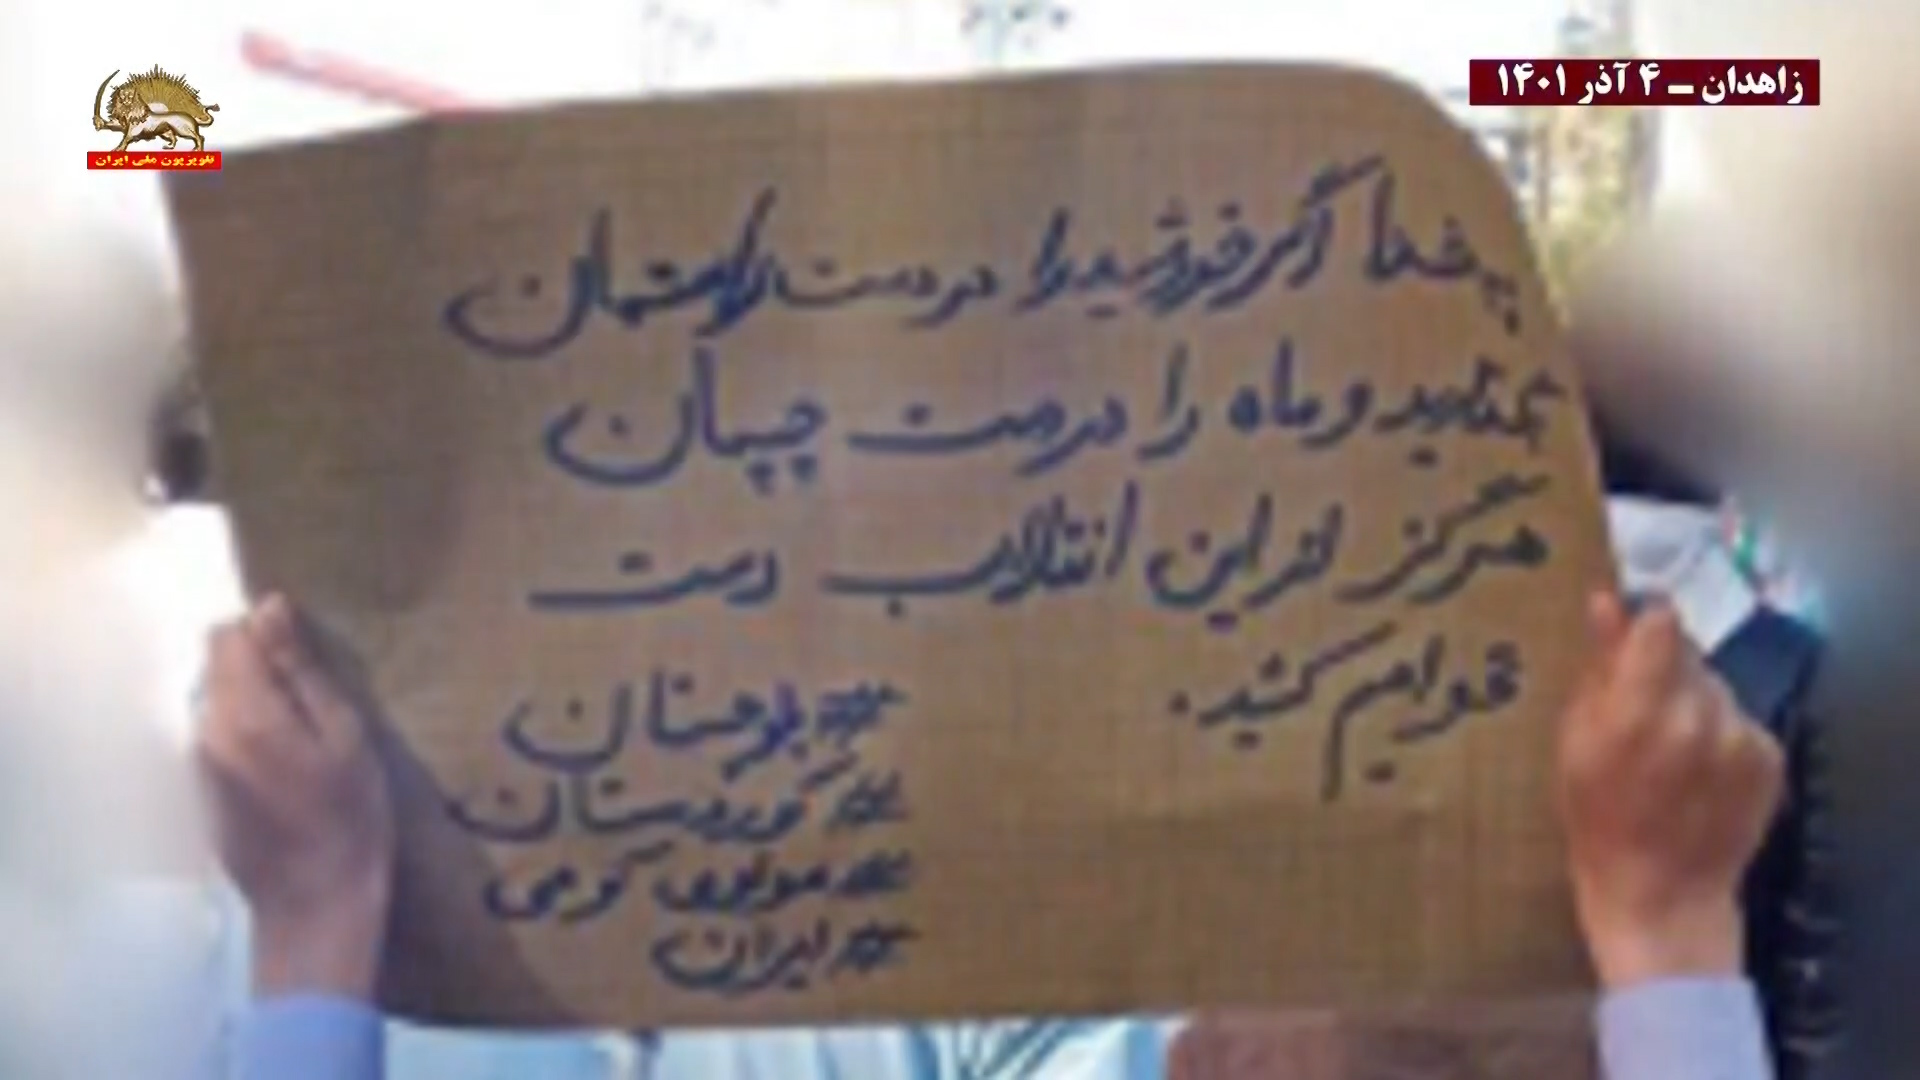 زاهدان ــ ۴ آذر ۱۴۰۱
تلویزیون ملی ایران
شما اگر خورشید را در دست راستمان
بگذارید و ماه را در دست چپمان
هرگز از این انقلاب دست
نخواهیم کشید.
#بلوچستان
#کوردستان
#مولوی گرگیج
#ایران